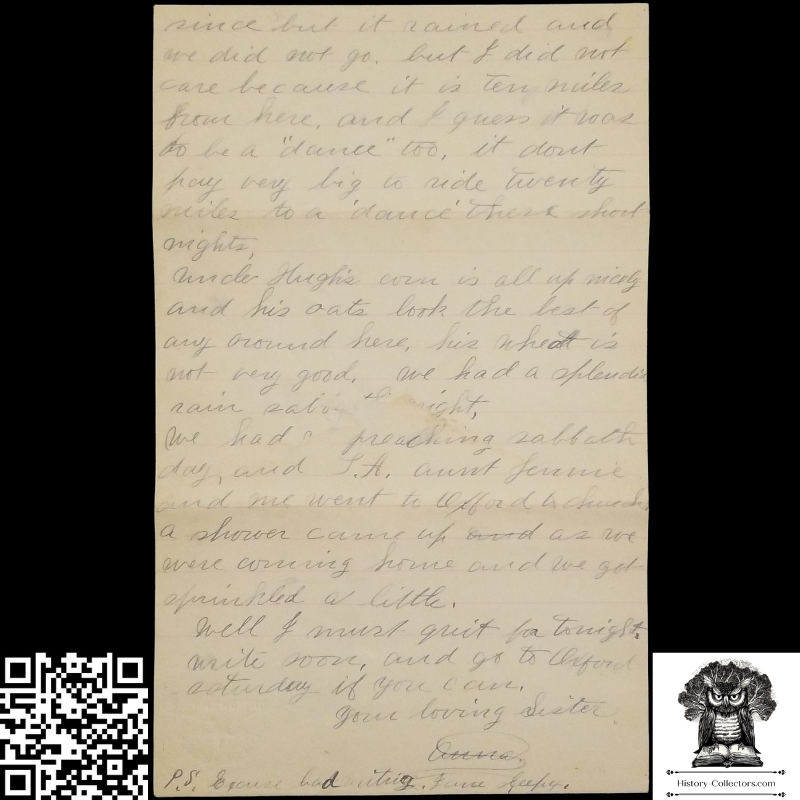 since but it rained and
we did not go. but I did not
care because it is ten miles
from here, and I guess it was
to be a "dance" too, it dont
pay very big to ride twenty
miles to a 'dance' these short
nights,
Uncle Hugh's corn is all up nicely
and his oats look the best of
any around here, his wheat is
not very good, we had a splendid
rain night,
We had preaching sabbath
day, and aunt Jennie
and me went to Oxford to church
a shower came up and as we
were coming home and we got
sprinkled a little.
Well I must quit for tonight.
write soon, and go to Oxford
saturday if you can.
Your loving Sister
Anna.
P.S. Excuse bad writing. I am sleepy.
History-Collectors.com